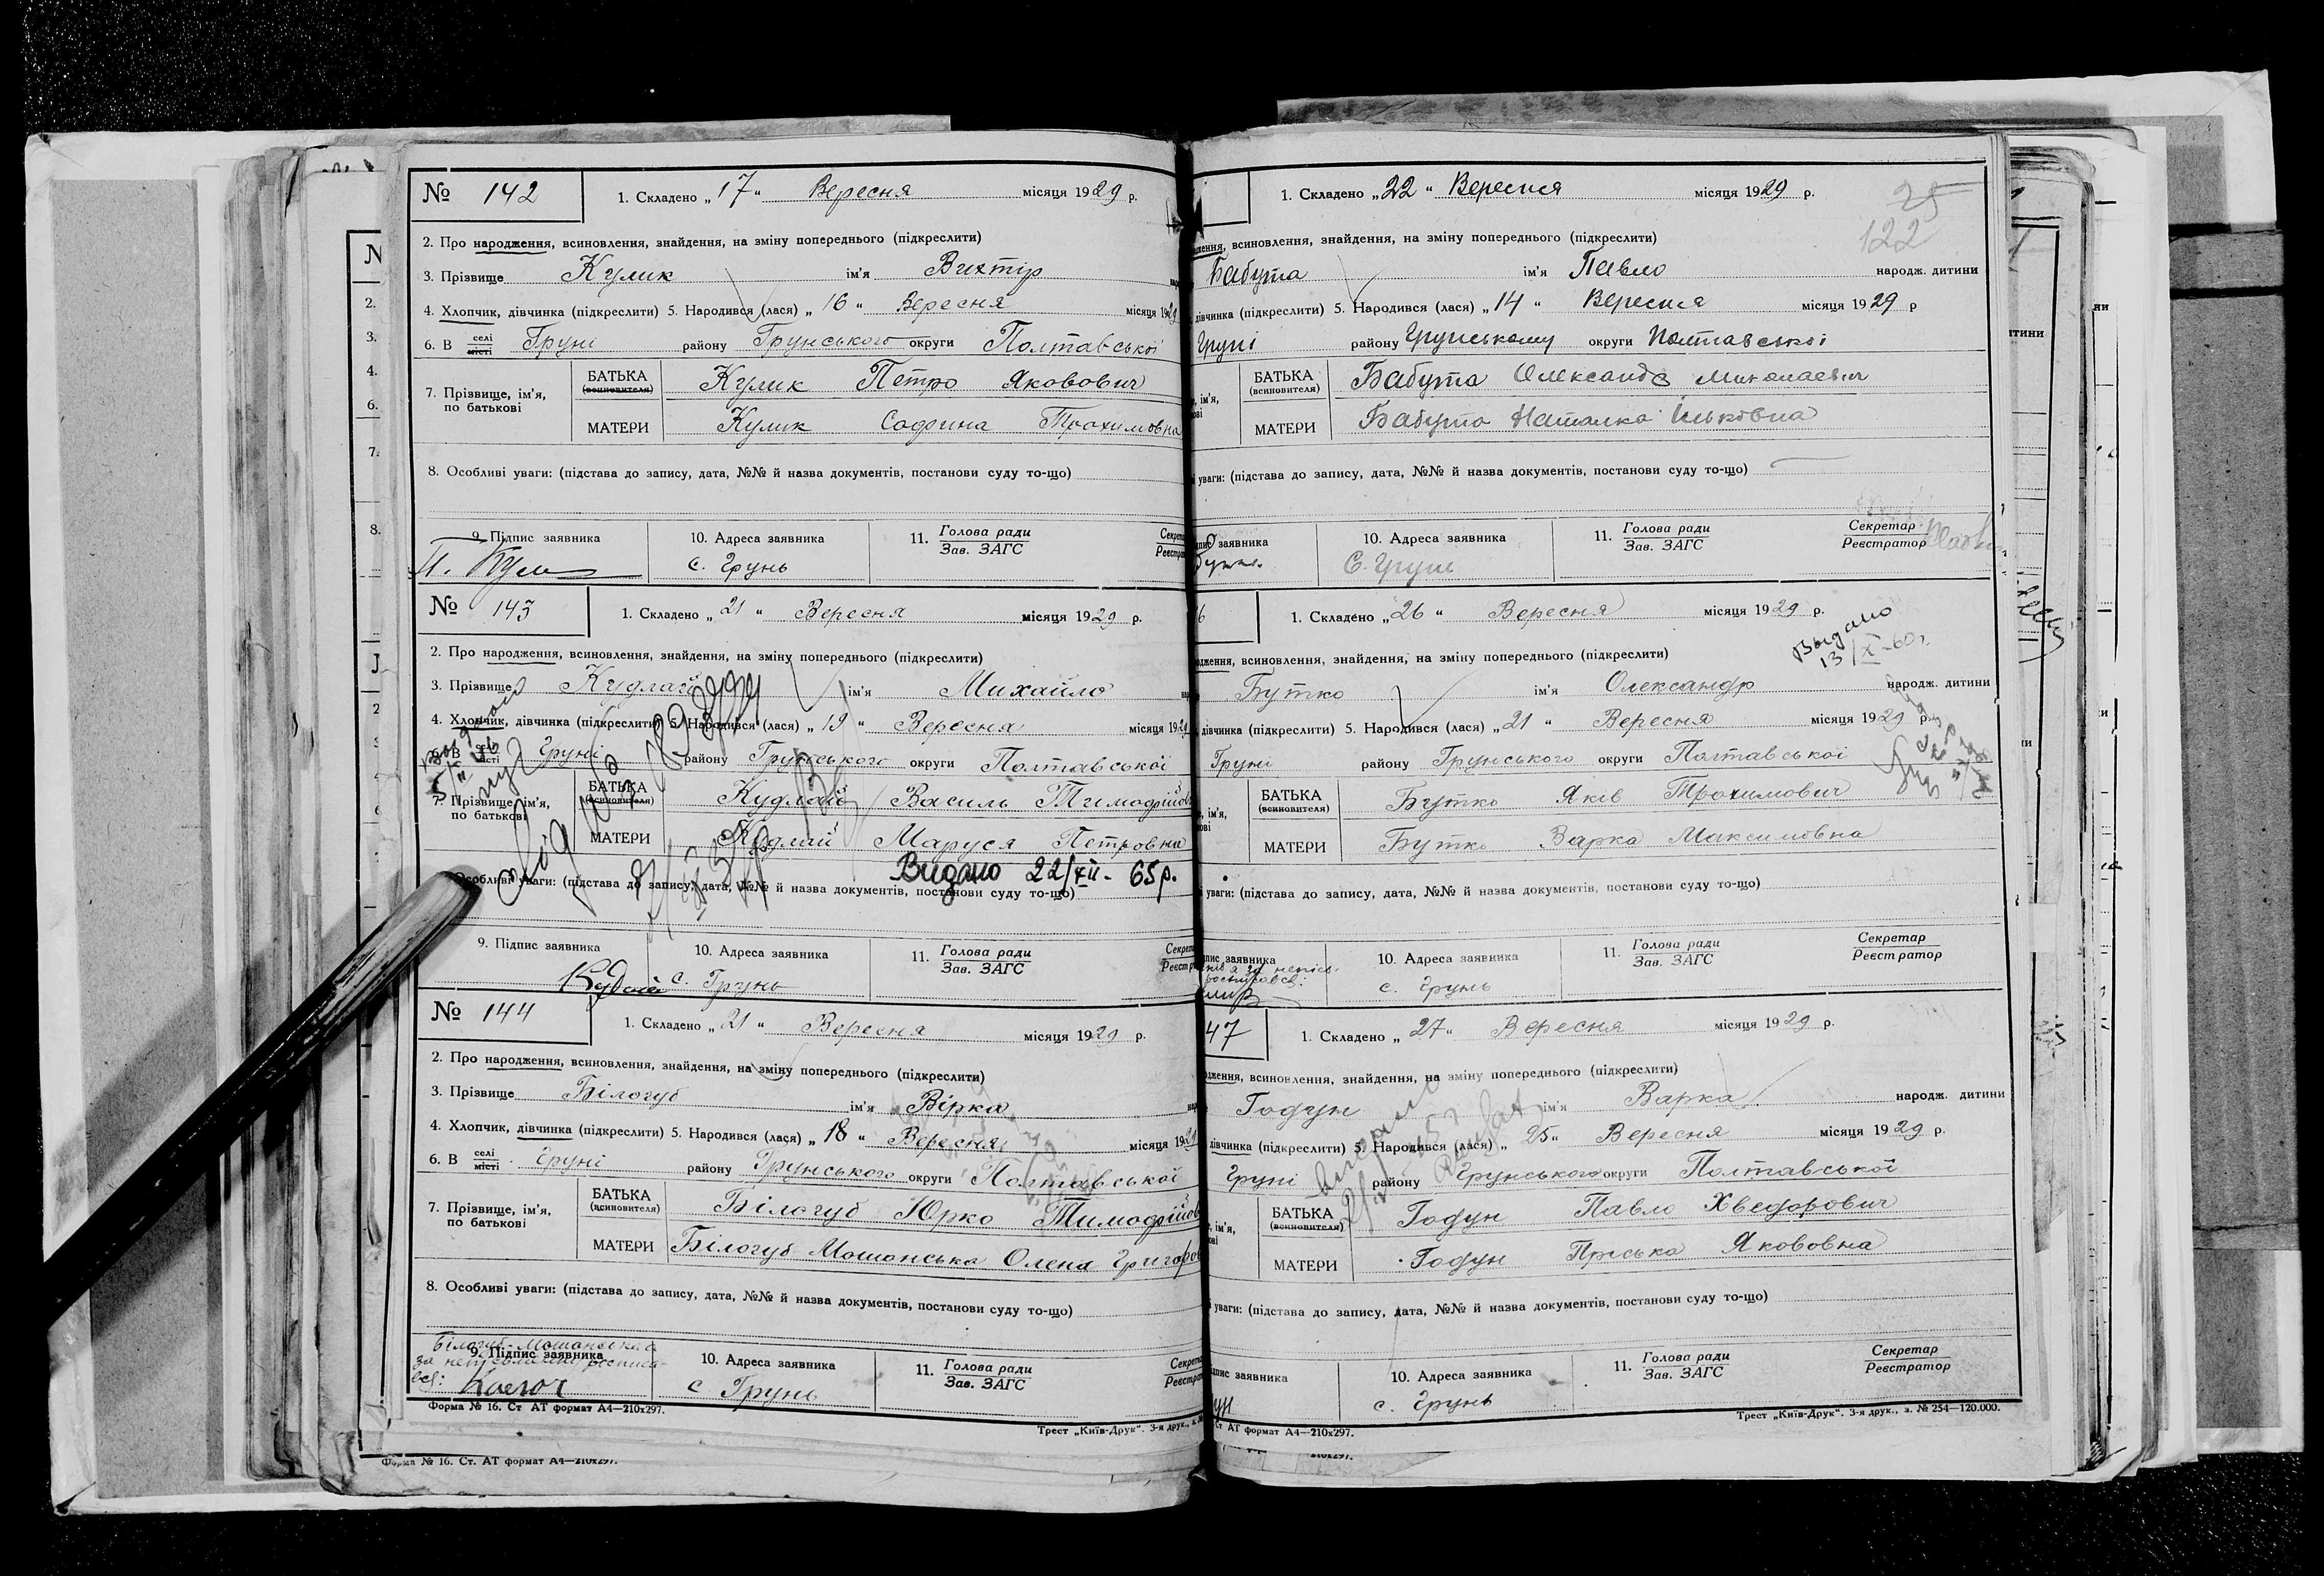 № 142 1. Складено „17“ Вересня місяця 1929 р.
2. Про народження, всиновлення, знайдення, на зміну попереднього (підкреслити)
3. Прізвище Кулик ім'я Вихтір
4. Хлопчик, дівчинка (підкреслити) 5. Народився (лася) „16“ Вересня місяця 1929
6. В селі місті Груні району Грунського округи Полтавської
7. Прізвище, ім'я, по батькові
БАТЬКА (всиновителя) Кулик Петро Якович
МАТЕРИ Кулик Трохимовна
8. Особливі уваги: (підстава до запису, дата, №№ й назва документів, постанови суду то-що)
9. Підпис заявника 10. Адреса заявника 11. Голова ради
Зав. ЗАГС
с. Грунь
№ 143 1. Складено „21“ Вересня місяця 1929 р.
2. Про народження, всиновлення, знайдення, на зміну попереднього (підкреслити)
3. Прізвище Кудлай ім'я Михайло
4. Хлопчик, дівчинка (підкреслити) 5. Народився (лася) „19“ Вересня місяця 1929
6. В селі місті Груні району Грунського округи Полтавської
7. Прізвище, ім'я, по батькові
БАТЬКА (всиновителя) Кудлай Василь Тимофійов
МАТЕРИ Кудлай Маруся Петровна
Видано 22/XII - 65 р.
8. Особливі уваги: (підстава до запису, дата, №№ й назва документів, постанови суду то-що)
9. Підпис заявника 10. Адреса заявника 11. Голова ради
Зав. ЗАГС
с. Грунь
№ 144 1. Складено „21“ Вересня місяця 1929 р.
2. Про народження, всиновлення, знайдення, на зміну попереднього (підкреслити)
3. Прізвище Білогуб ім'я Вірка
4. Хлопчик, дівчинка (підкреслити) 5. Народився (лася) „18“ Вересня місяця 1929
6. В селі місті Груні району Грунського округи Полтавської
7. Прізвище, ім'я, по батькові
БАТЬКА (всиновителя) Білогуб Юрко Тимофійов
МАТЕРИ Білогуб-Мошонська Олена Григоров
8. Особливі уваги: (підстава до запису, дата, №№ й назва документів, постанови суду то-що)
9. Підпис заявника 10. Адреса заявника 11. Голова ради
Зав. ЗАГС
с Грунь
Форма № 16. Ст АТ формат А4—210х297.
Трест „Київ-Друк“. 3-я друк.,
Форма № 16. Ст. АТ формат А4—210х297.
1. Складено „22“ Вересня місяця 1929 р.
122
всиновлення, знайдення, на зміну попереднього (підкреслити)
Бабута ім'я Павло народж. дитини
дівчинка (підкреслити) 5. Народився (лася) „14“ Вересня місяця 1929 р
Груні району Грунському округи Полтавської
БАТЬКА (всиновителя) Бабута Олександр Миколаевич
МАТЕРИ Бабута Наталка Ільковна
уваги: (підстава до запису, дата, №№ й назва документів, постанови суду то-що)
заявника 10. Адреса заявника 11. Голова ради Секретар
Зав. ЗАГС Реєстратор
С. Грунь
6 1. Складено „26“ Вересня місяця 1929 р.
Выдано
13/X-60 г.
всиновлення, знайдення, на зміну попереднього (підкреслити)
Бутко ім'я Олександр народж. дитини
дівчинка (підкреслити) 5. Народився (лася) „21“ Вересня місяця 1929 р
Груні району Грунського округи Полтавської
БАТЬКА (всиновителя) Бутко Яків Трохимович
МАТЕРИ Бутко Варка Максимовна
уваги: (підстава до запису, дата, №№ й назва документів, постанови суду то-що)
заявника 10. Адреса заявника 11. Голова ради Секретар
Зав. ЗАГС Реєстратор
с. Грунь
47 1. Складено „27“ Вересня місяця 1929 р.
всиновлення, знайдення, на зміну попереднього (підкреслити)
Годун ім'я Варка народж. дитини
дівчинка (підкреслити) 5. Народився (лася) „25“ Вересня місяця 1929 р.
Груні району Грунського округи Полтавської
БАТЬКА (всиновителя) Годун Павло Хведорович
МАТЕРИ Годун Пріська Якововна
уваги: (підстава до запису, дата, №№ й назва документів, постанови суду то-що)
заявника 10. Адреса заявника 11. Голова ради Секретар
Зав. ЗАГС Реєстратор
с. Грунь
Ст АТ формат А4—210х297.
Трест „Київ-Друк“. 3-я друк., з. № 254—120.000.